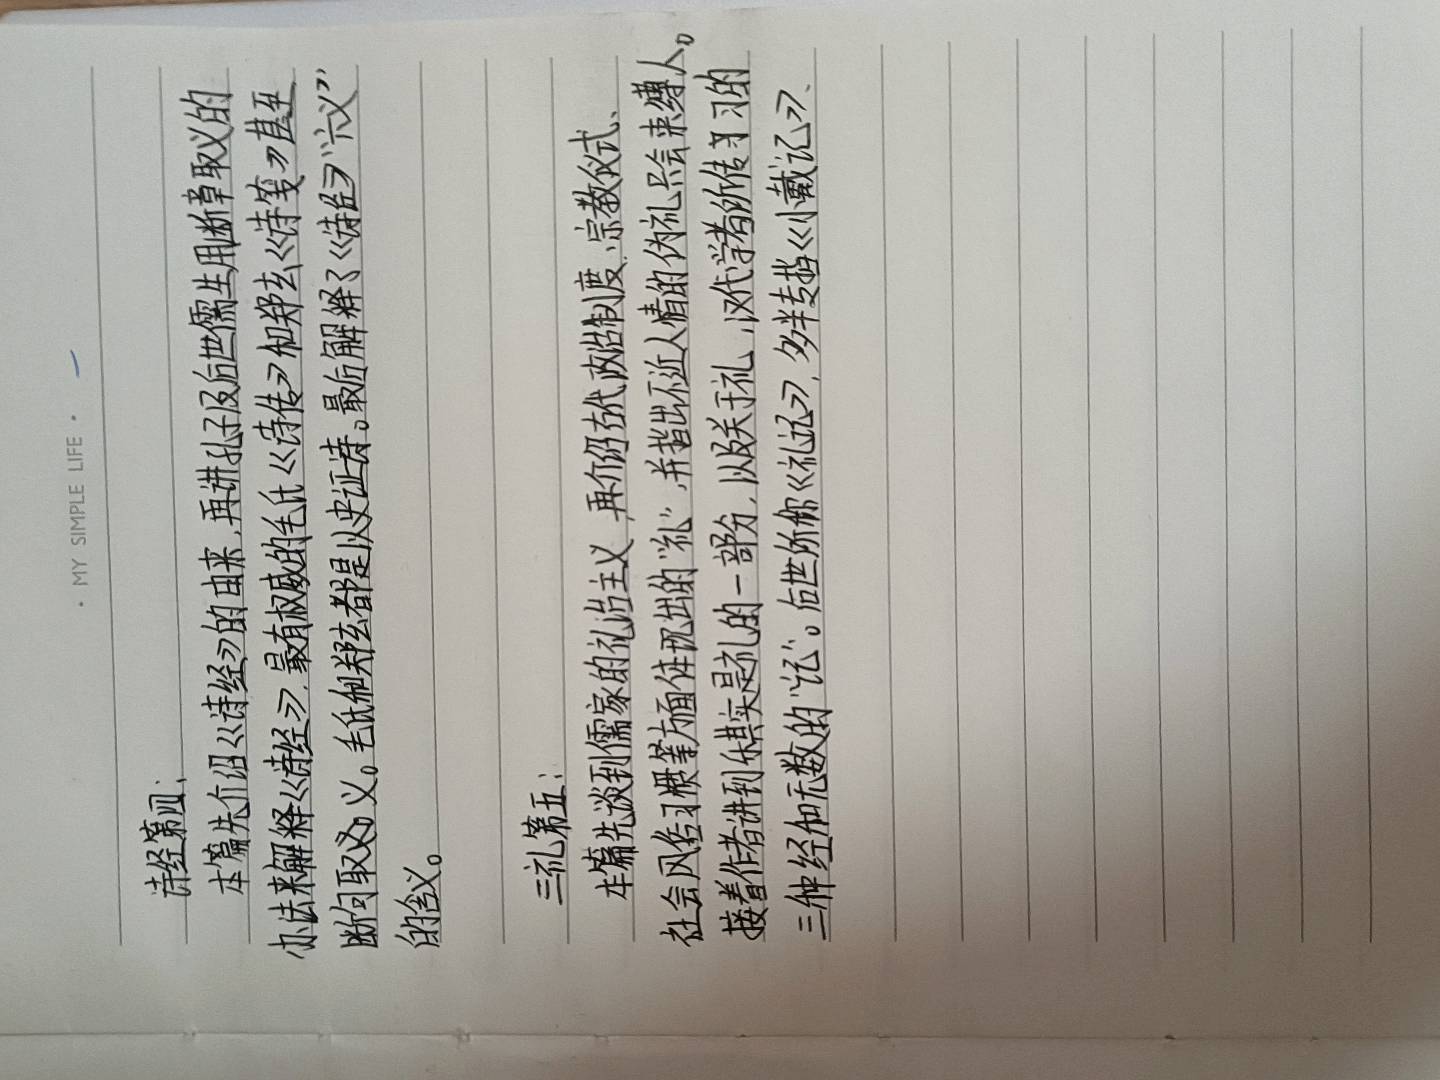 · MY SIMPLE LIFE ·
诗经第四：
本篇先介绍《诗经》的由来，再讲孔子及后世儒生用断章取义的
办法来解释《诗经》，最有权威的毛氏《诗传》和郑玄《诗笺》甚至
断句取义。毛氏和郑玄都是以史证诗。最后解释了《诗经》“六义”
的含义。
三礼第五：
本篇先谈到儒家的礼治主义，再介绍古代政治制度、宗教仪式、
社会风俗习惯等方面体现出的“礼”，并指出不近人情的伪礼只会来缚人。
接着作者讲到乐其实是礼的一部分，以及关于礼，汉代学者所传习的
三种经和无数的“记”。后世所称《礼记》，多半专指《小戴记》、